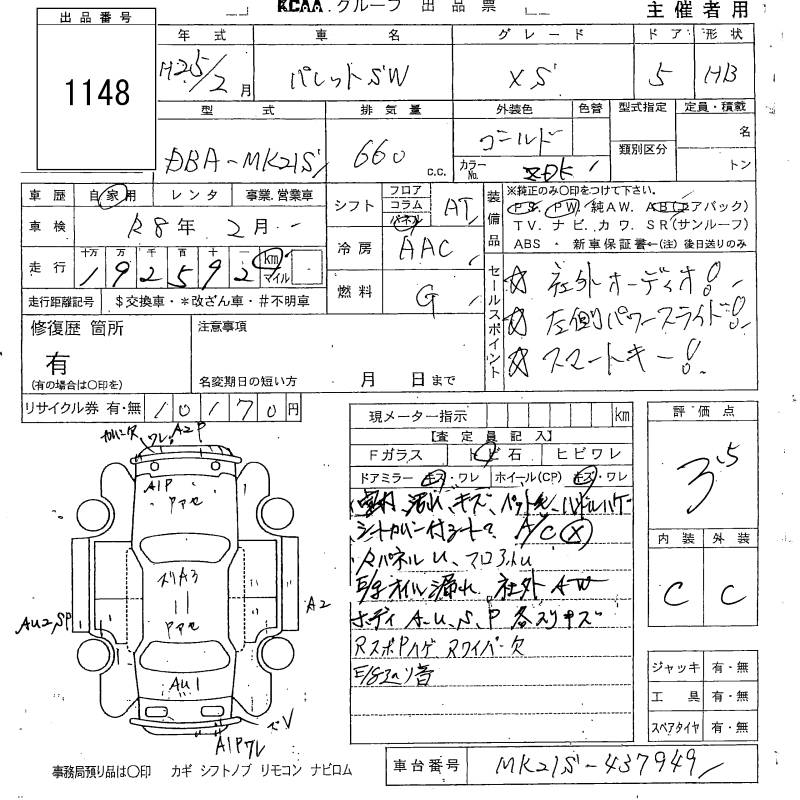 KCAA グループ 出品票
主催者用
出品番号
1148
年式 車名 グレード ドア 形状
H25/2月 パレットSW XS 5 HB
型式 排気量 外装色 色替 型式指定 定員・積載
DBA-MK21S 660 c.c. ゴールド 名
カラーNo. ZDK 類別区分 トン
車歴 自家用 レンタ 事業.営業車
車検 R8年 2月
走行 十万 万 千 百 十 一
192592 km マイル
走行距離記号 $交換車・*改ざん車・#不明車
シフト フロア コラム パネル AT
冷房 AAC
燃料 G
装備品
※純正のみ○印をつけて下さい。
PS. PW. 純AW. AB(エアバック)
TV. ナビ. カワ. SR(サンルーフ)
ABS ・ 新車保証書←(注) 後日送りのみ
セールスポイント
☆ 社外オーディオ!
☆ 左側パワースライド!
☆ スマートキー!
修復歴 箇所
有
(有の場合は○印を)
注意事項
名変期日の短い方 月 日まで
リサイクル券 有・無 10170円
現メーター指示 km
【査定員記入】
Fガラス トビ石 ヒビワレ
ドアミラー キズ・ワレ ホイール(CP) キズ・ワレ
室内 汚れ、キズ、ハンドルハゲ
シートカバー付 A/C ×
Rパネル U、フロアU
E/gオイル漏れ、社外AW
ボディ A、U、S、P 各スリキズ
RスポPハゲ Rワイパー欠
評価点
3.5
内装 外装
C C
ジャッキ 有・無
工具 有・無
スペアタイヤ 有・無
ワレ、A2P
A1P
アマセ
スリA3
アマセ
AU2,SP
A2
AU1
A1Pワレ
事務局預り品は○印 カギ シフトノブ リモコン ナビロム
車台番号 MK21S-437949